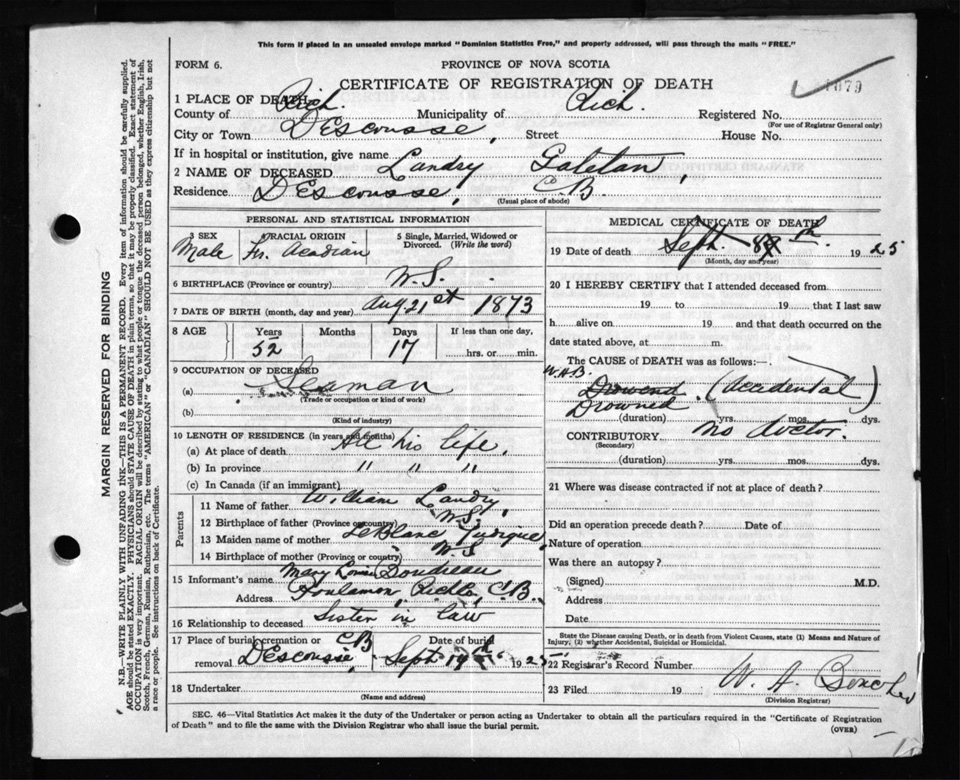 This form if placed in an unsealed envelope marked "Dominion Statistics Free," and properly addressed, will pass through the mails "FREE."
FORM 6.
PROVINCE OF NOVA SCOTIA
CERTIFICATE OF REGISTRATION OF DEATH
1079
1 PLACE OF DEATH
County of Rich. Municipality of Rich. Registered No.
(For use of Registrar General only)
City or Town DEscousse, Street House No.
If in hospital or institution, give name
2 NAME OF DECEASED Landry Galetan,
Residence DEscousse, CB.
(Usual place of abode)
MARGIN RESERVED FOR BINDING
N.B.—WRITE PLAINLY WITH UNFADING INK—THIS IS A PERMANENT RECORD. Every item of information should be carefully supplied.
AGE should be stated EXACTLY. PHYSICIANS should STATE CAUSE OF DEATH in plain terms, so that it may be properly classified. Exact statement of
OCCUPATION is very important. RACIAL ORIGIN will be described by stating to what people or tongue the deceased person belonged, whether English, Irish,
Scotch, French, German, Russian, Ruthenian, etc. The terms "AMERICAN" or "CANADIAN" SHOULD NOT BE USED as they express citizenship but not
a race or people. See instructions on back of Certificate.
PERSONAL AND STATISTICAL INFORMATION
3 SEX 4 RACIAL ORIGIN 5 Single, Married, Widowed or Divorced. (Write the word)
Male Fr. Acadian
6 BIRTHPLACE (Province or country) N.S.
7 DATE OF BIRTH (month, day and year) Aug 21st 1873
8 AGE Years Months Days If less than one day,
52 17 hrs. or min.
9 OCCUPATION OF DECEASED
(a) Seaman
(Trade or occupation or kind of work)
(b)
(Kind of industry)
10 LENGTH OF RESIDENCE (in years and months)
(a) At place of death All his life,
(b) In province " " "
(c) In Canada (if an immigrant)
Parents
11 Name of father William Landry,
12 Birthplace of father (Province or country) N.S,
13 Maiden name of mother LeBlanc
14 Birthplace of mother (Province or country) N.S
15 Informant's name Mary Louise Boudreau
Address C.B.
16 Relationship to deceased Sister in law
17 Place of burial, cremation or removal CB DEscousse Date of burial Sept 1925
18 Undertaker
(Name and address)
MEDICAL CERTIFICATE OF DEATH
19 Date of death Sept. 8 th 1925
(Month, day and year)
20 I HEREBY CERTIFY that I attended deceased from
19 to 19 that I last saw
h alive on 19 and that death occurred on the
date stated above, at m.
The CAUSE of DEATH was as follows:—
W.A.B.
Drowend (Accidental)
Drowned
(duration) yrs. mos. dys.
CONTRIBUTORY No doctor.
(Secondary)
(duration) yrs. mos. dys.
21 Where was disease contracted if not at place of death?
Did an operation precede death? Date of
Nature of operation
Was there an autopsy?
(Signed) M.D.
Address
Date
State the Disease causing Death, or in death from Violent Causes, state (1) Means and Nature of
Injury, (2) whether Accidental, Suicidal or Homicidal.
22 Registrar's Record Number
23 Filed 19 W. A.
(Division Registrar)
SEC. 46—Vital Statistics Act makes it the duty of the Undertaker or person acting as Undertaker to obtain all the particulars required in the "Certificate of Registration
of Death" and to file the same with the Division Registrar who shall issue the burial permit.
(OVER)